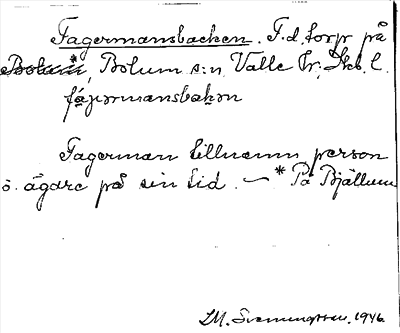 Fagermansbacken. F.d. torp på
Bolum*, Bolum s:n, Valle hr, Skb. l.
fa̱germansbakən
Fagerman tillnamn, person
o. ägare på sin tid. — * På Bjällum
I.M. Svenningsson. 1946.